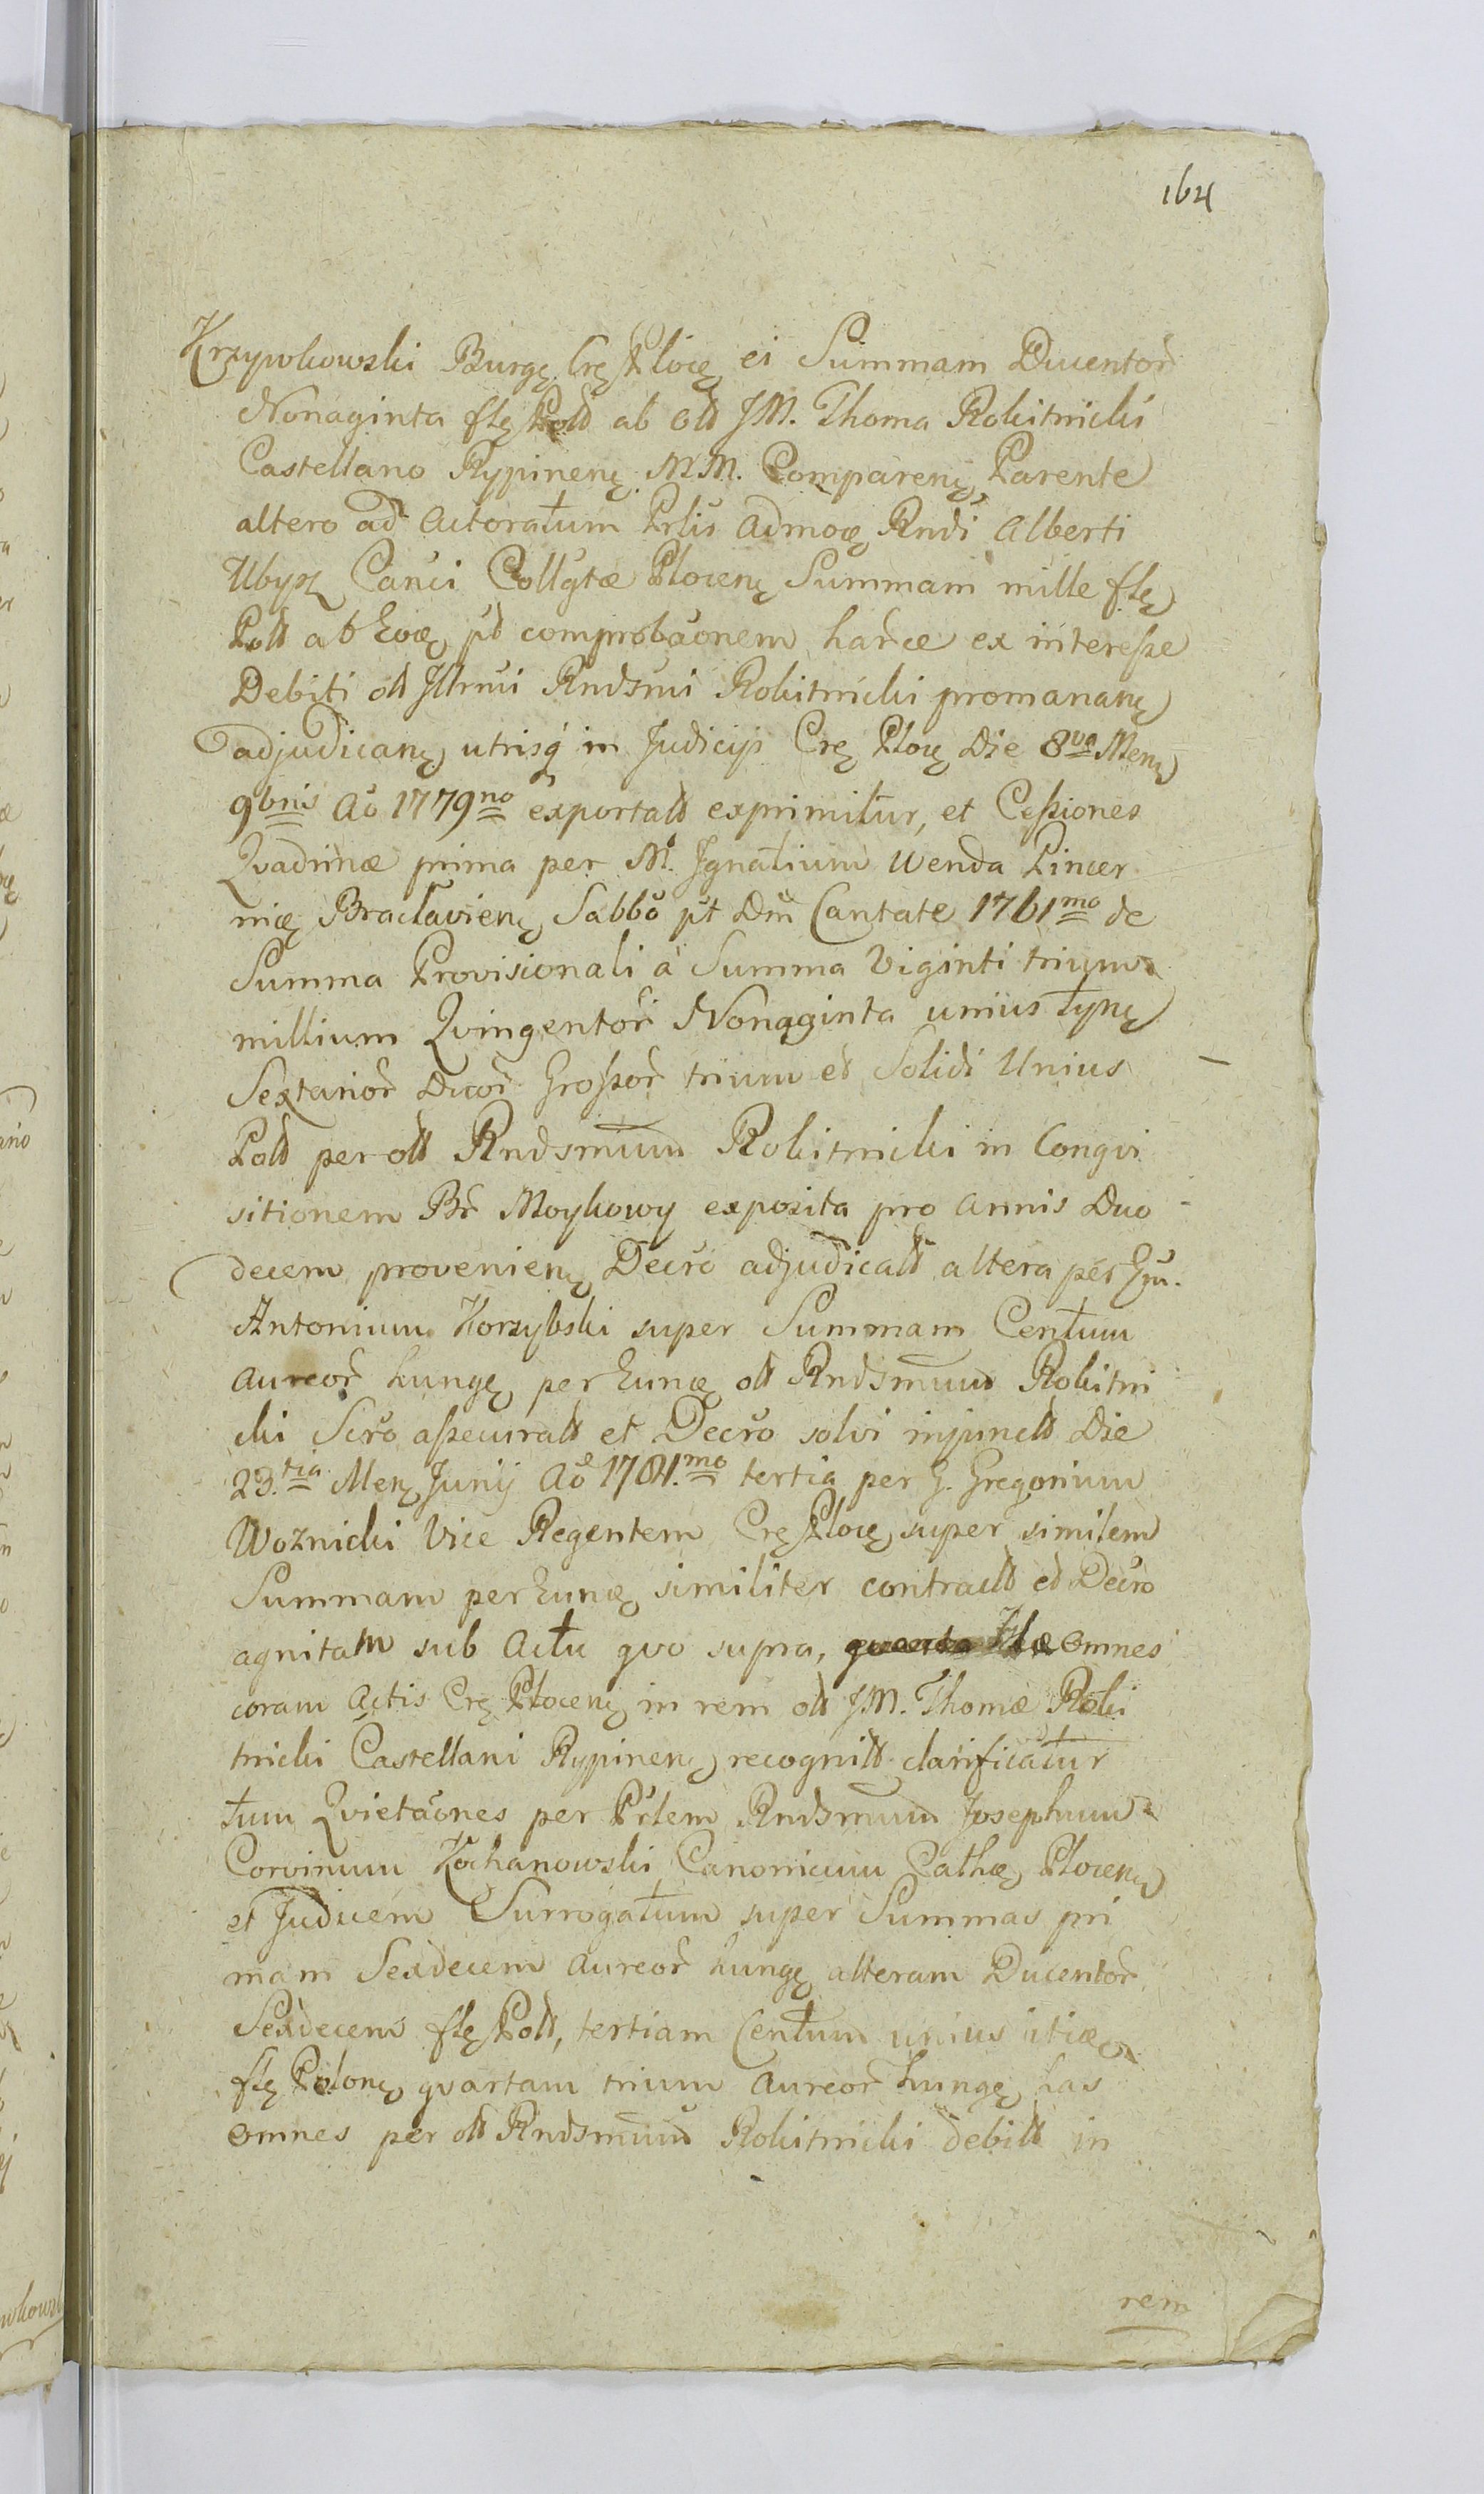 164
Krzywkowski Burgę Crę Plocę ei Summam Ducentor
Nonaginta flę Pold ab old JM. Thoma Rokitnicki
Castellano Rypinenę MM. Comparenę Parente
altero ad actoratum Prlis admoę Rndi Alberti
Ubysz Canci Collgtæ Plocenę Summam mille flę
Pold ab Eoę pd comprobaonem hance ex interesse
Debiti old Illrmi Rndsmi Rokitnicki promananę
adjudicanę utrisq in Judicijs Crę Plocę Die 8va Menę
9bris Ao 1779no exportald exprimitur, et Cessiones
Qvadrinæ prima per M. Ignatium Wenda Pincer
nię Braclavienę Sabbo pt Dm Cantate 1761mo de
Summa Provisionali a Summa Viginti trium
millium Qvingentor Nonaginta unius tynę
Sextarior Duor Grossor trium et Solidi Unius
Pold per old Rndsmum Rokitnicki in Conqvi
sitionem Br Moykowy exposita pro annis Duo
decem provenienę Decro adjudicald altera per Gm.
Antonium Korzybski super Summam Centum
aureor hungę per Eunę old Rndsmum Rokitni
cki Scro assecurald et Decro solvi injuncld Die
23.tia Menę Junij Ao 1781.mo tertia per G. Gregorium
Woznicki Vice Regentem Crę Plocę super similem
Summam per Eunę similiter contracld et Decro
agnitam sub actu qvo supra, omnes
coram actis Crę Plocenę in rem old JM. Thomæ Roki
tnicki Castellani Rypinenę recognild clarificatur
tum Qvietaones per Prlem Rndsmum Josephum
Corvinum Kochanowski Canonicum Cathę Plocenę
et Judicem Surrogatum super Summas pri
mam Sexdecem aureor hungę alteram Ducentor
Sexdecem flę Pold, tertiam Centum unius
flę Polonę qvartam trium aureor hungę has
omnes per old Rndsmum Rokitnicki debild in
rem